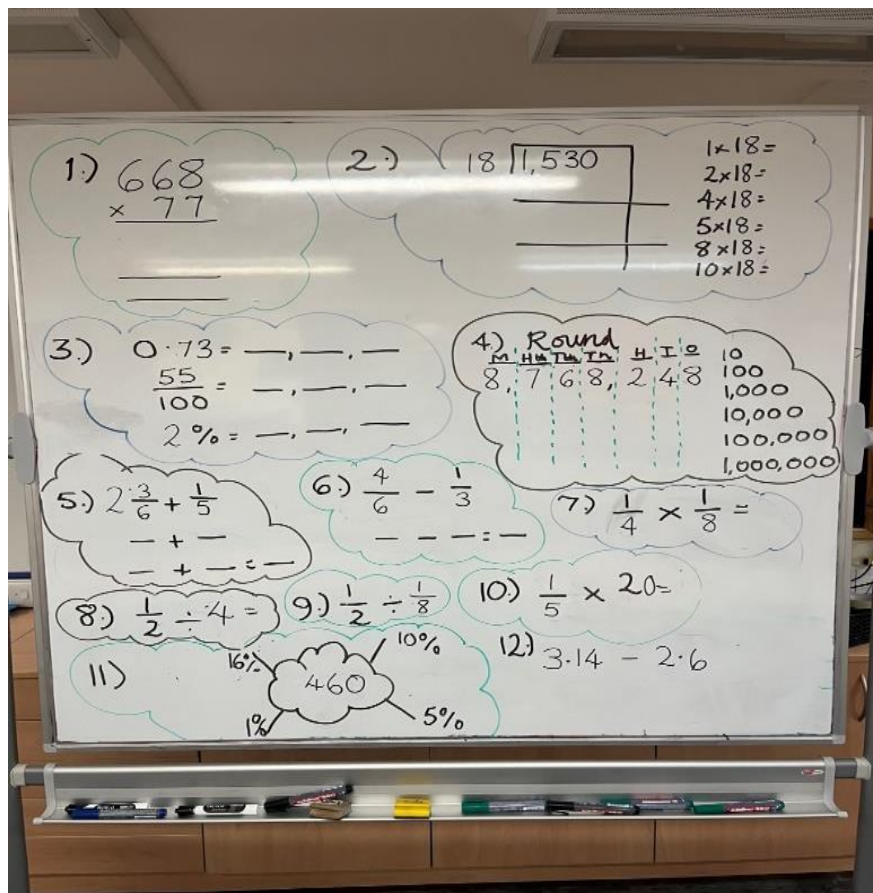 1.) 668
× 77
2.) 18 1,530
1×18=
2×18=
4×18=
5×18=
8×18=
10×18=
3.) 0.73 = —, —, —
55/100 = —, —, —
2% = —, —, —
4.) Round
M HTh TTh Th H T O
8, 7 6 8, 2 4 8
10
100
1,000
10,000
100,000
1,000,000
5.) 2 3/6 + 1/5
— + —
— + — = —
6.) 4/6 − 1/3
— − — = —
7.) 1/4 × 1/8 =
8.) 1/2 ÷ 4 =
9.) 1/2 ÷ 1/8
10.) 1/5 × 20=
11)
16%
10%
460
1%
5%
12.) 3.14 − 2.6